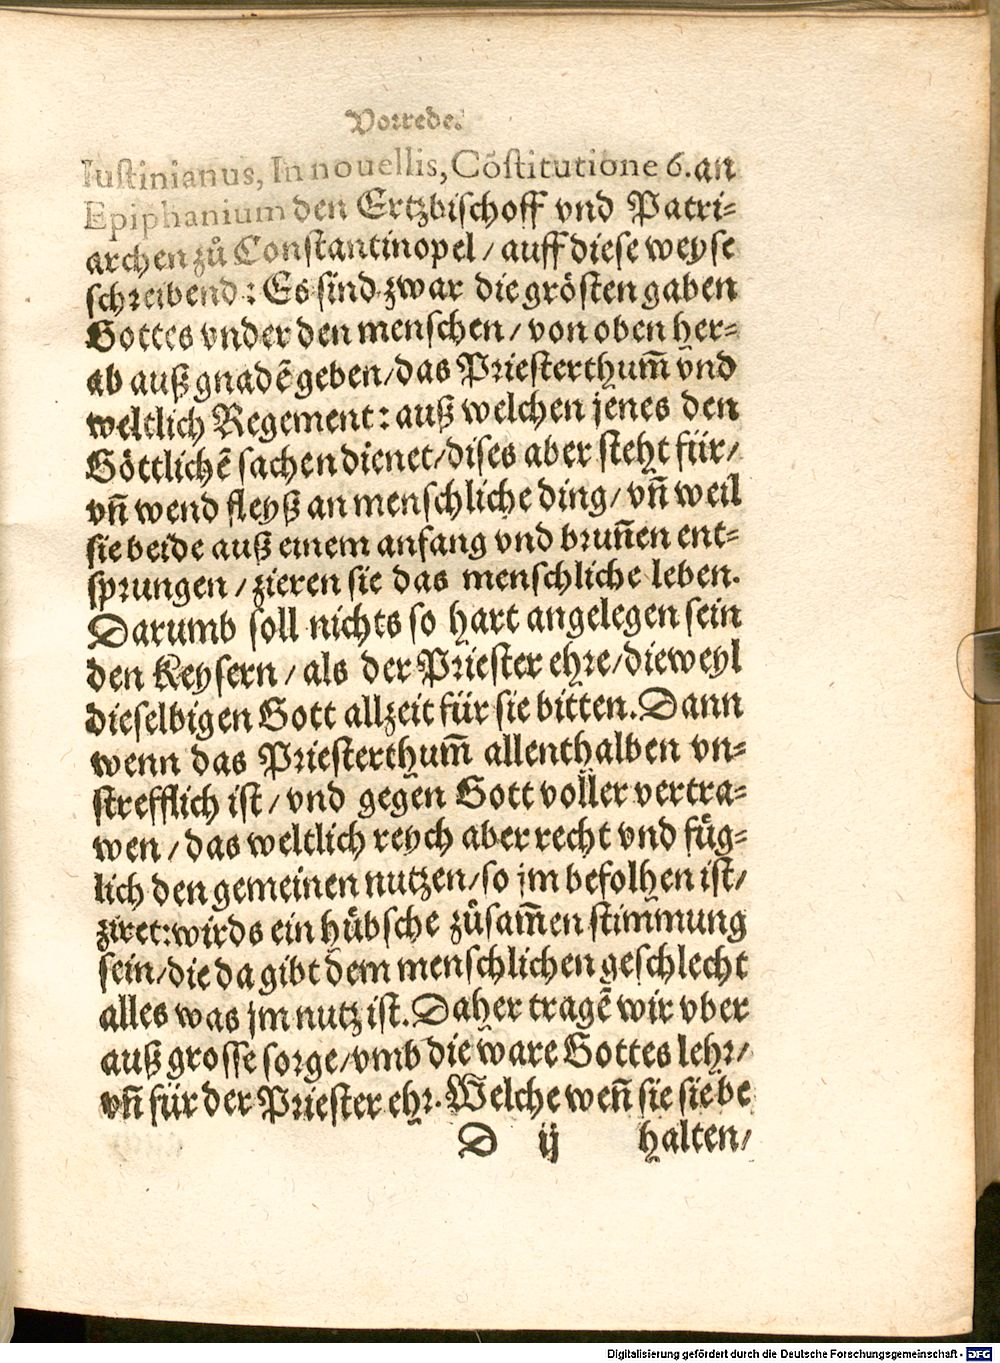 Vorrede.
Iustinianus, In nouellis, Cõstitutione 6. an
Epiphanium den Ertzbischoff vnd Patri⸗
archen zů Constantinopel / auff diese weyse
schreibend: Es sind zwar die grösten gaben
Gottes vnder den menschen / von oben her⸗
ab auß gnadẽ geben/das Priesterthum̃ vnd
weltlich Regement: auß welchen jenes den
Göttlichẽ sachen dienet/dises aber steht für/
vñ wend fleyß an menschliche ding/ vñ weil
sie beide auß einem anfang vnd brun̄en ent⸗
sprungen / zieren sie das menschliche leben.
Darumb soll nichts so hart angelegen sein
den Keysern / als der Priester ehre/ dieweyl
dieselbigen Gott allzeit für sie bitten. Dann
wenn das Priesterthum̃ allenthalben vn⸗
strefflich ist / vnd gegen Gott voller vertra⸗
wen / das weltlich reych aber recht vnd füg⸗
lich den gemeinen nutzen/so jm befolhen ist/
ziret:wirds ein hübsche zůsam̃en stimmung
sein/die da gibt dem menschlichen geschlecht
alles was jm nutz ist. Daher tragẽ wir vber
auß grosse sorge/vmb die ware Gottes lehr/
vñ für der Priester ehr. Welche weñ sie sie be
D ij halten/
Digitalisierung gefördert durch die Deutsche Forschungsgemeinschaft - DFG